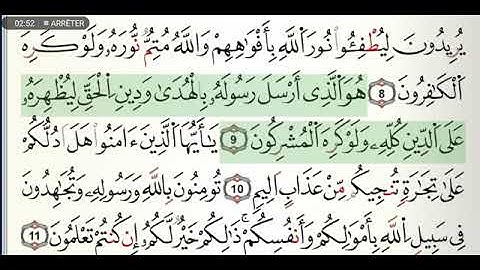 02:52 ■ ARRÊTER
يُرِيدُونَ لِيُطْفِـُٔوا۟ نُورَ ٱللَّهِ بِأَفْوَٰهِهِمْ وَٱللَّهُ مُتِمُّ نُورَهُۥ وَلَوْ كَرِهَ
ٱلْكَٰفِرُونَ 8 هُوَ ٱلَّذِىٓ أَرْسَلَ رَسُولَهُۥ بِٱلْهُدَىٰ وَدِينِ ٱلْحَقِّ لِيُظْهِرَهُۥ
عَلَى ٱلدِّينِ كُلِّهِۦ وَلَوْ كَرِهَ ٱلْمُشْرِكُونَ 9 يَٰٓأَيُّهَا ٱلَّذِينَ ءَامَنُوا۟ هَلْ أَدُلُّكُمْ
عَلَىٰ تِجَٰرَةٍ تُنجِيكُم مِّنْ عَذَابٍ أَلِيمٍ 10 تُؤْمِنُونَ بِٱللَّهِ وَرَسُولِهِۦ وَتُجَٰهِدُونَ
فِى سَبِيلِ ٱللَّهِ بِأَمْوَٰلِكُمْ وَأَنفُسِكُمْ ۚ ذَٰلِكُمْ خَيْرٌ لَّكُمْ إِن كُنتُمْ تَعْلَمُونَ 11